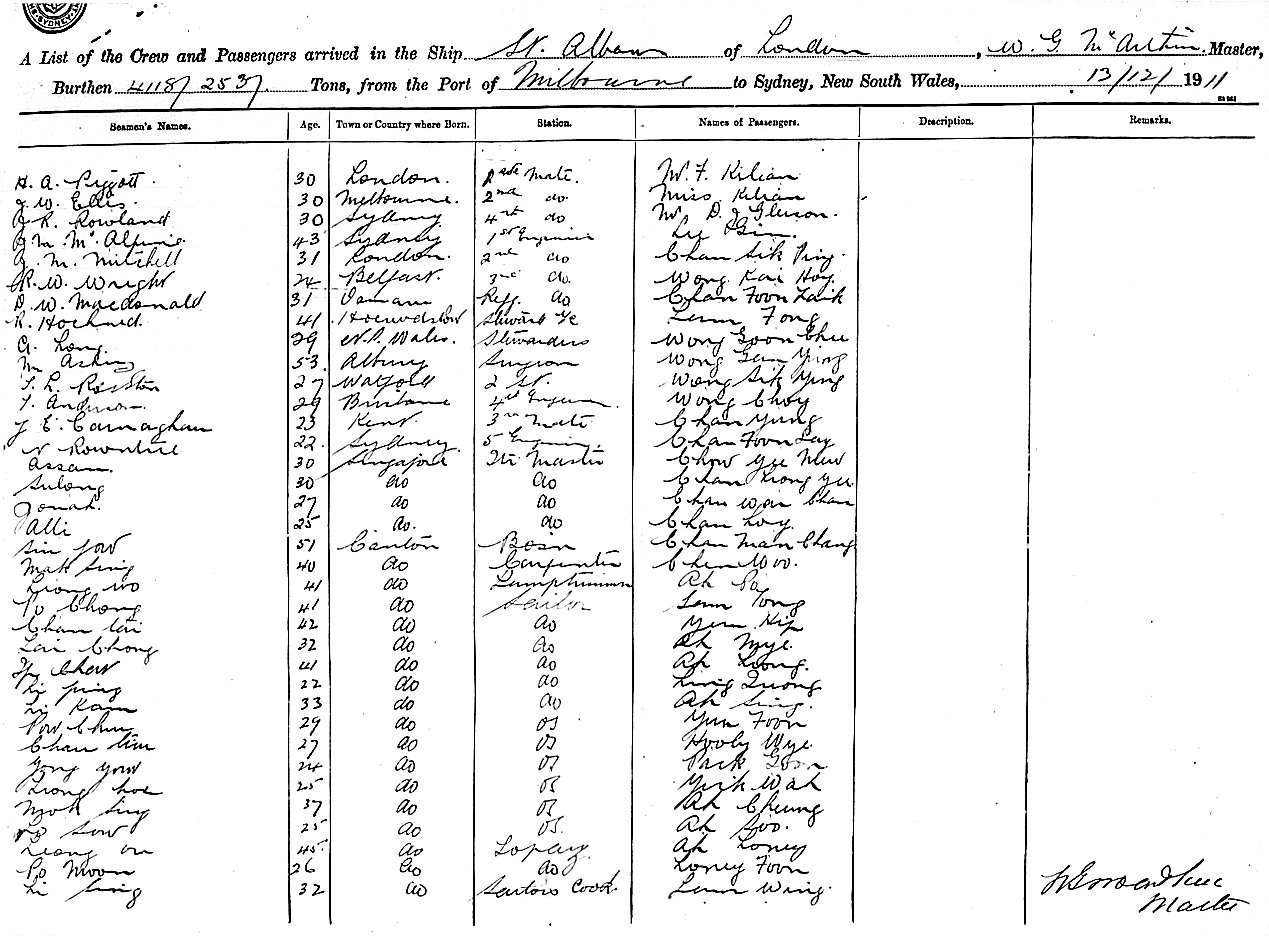 SYDNEY
A List of the Crew and Passengers arrived in the Ship St. Albans of London, W. G. McArthur Master,
Burthen 4118/2537. Tons, from the Port of Melbourne to Sydney, New South Wales, 13/12/ 1911
Seamen's Names. Age. Town or Country where Born. Station. Names of Passengers. Description. Remarks.
H. A. Piggott. 30 London. Mate. W. F. Kilian
J. W. Ellis. 30 Melbourne. 2nd do. Miss Kilian
J. R. Rowland 30 Sydney 4th do D. J. Gleeson.
J. M. McAlpine. 43 Sydney 1st Engineer
J. M. Mitchell 31 London. 2nd do Chan Sik Ping.
R. W. Wright 24 Belfast. 3rd do. Wong Kai Hoy
D. W. Macdonald 31 do Chan Foon
R. 41 Steward Leun Fong
A. Long 29 N. S. Wales. Stewardess Wong Goon
M. 53. Albury Surgeon Wong Ying
27 Watford 2 St. Wong Sik Ying
Anderson. 29 Brisbane 4th Engineer. Wong Choy
J. E. Carnaghan 23 Kent. 3rd Mate Chan Yung
Rowntree 22. Sydney. 5 Engineer. Chan Foon Lay
Assan. 30 Singapore Master Chow Yee
Sulong 30 do do Chan Kiong
Jonah. 27 do do Chan Wai Chan
Alli 25 do. do Chan Loy.
51 Canton Bosn Chan Man Chang
Mak Sing 40 do Carpenter Chen Woo.
Leong Wo 41 do Lamptrimmer Ah
Po Chong 41 do Sailor Leun Tong
Chan Tai 42 do do Yuen Hip
Lai Chong 32 do do Ah Mye.
Chow 41 do do Ah Leong.
Li Ping 22 do do Ling Quong
Li Kam 33 do do Ah Sing.
Pow Chun 29 do OS Yun Foon
Chan Tim 27 do OS Hooby Wye
Yong Yow 24 do OS Pack Goon
Leong 25 do OS Yick Wah
Mok Sing 37 do OS Ah Cheung
Lo Sow 25 do OS. Ah Soo.
Leong On 45 do Ah Loney
Po Moon 26 do do Loney Foon
Li Sing 32 do Sailors Cook. Leun Wing.
Master